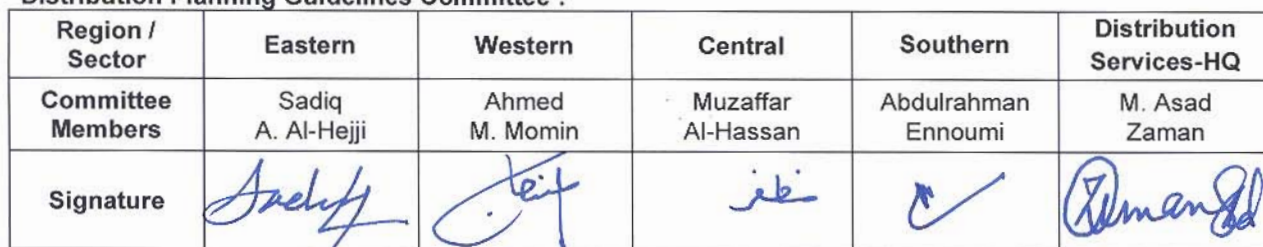 Distribution Planning Guidelines Committee :
Region / Sector Eastern Western Central Southern Distribution Services-HQ
Committee Members Sadiq A. Al-Hejji Ahmed M. Momin Muzaffar Al-Hassan Abdulrahman Ennoumi M. Asad Zaman
Signature